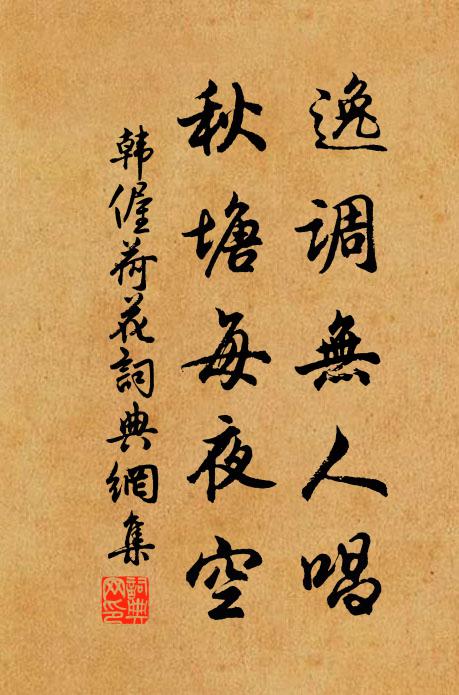 逸調無人唱
秋塘每夜空
韩偓荷花詞典網集
詞典
网印